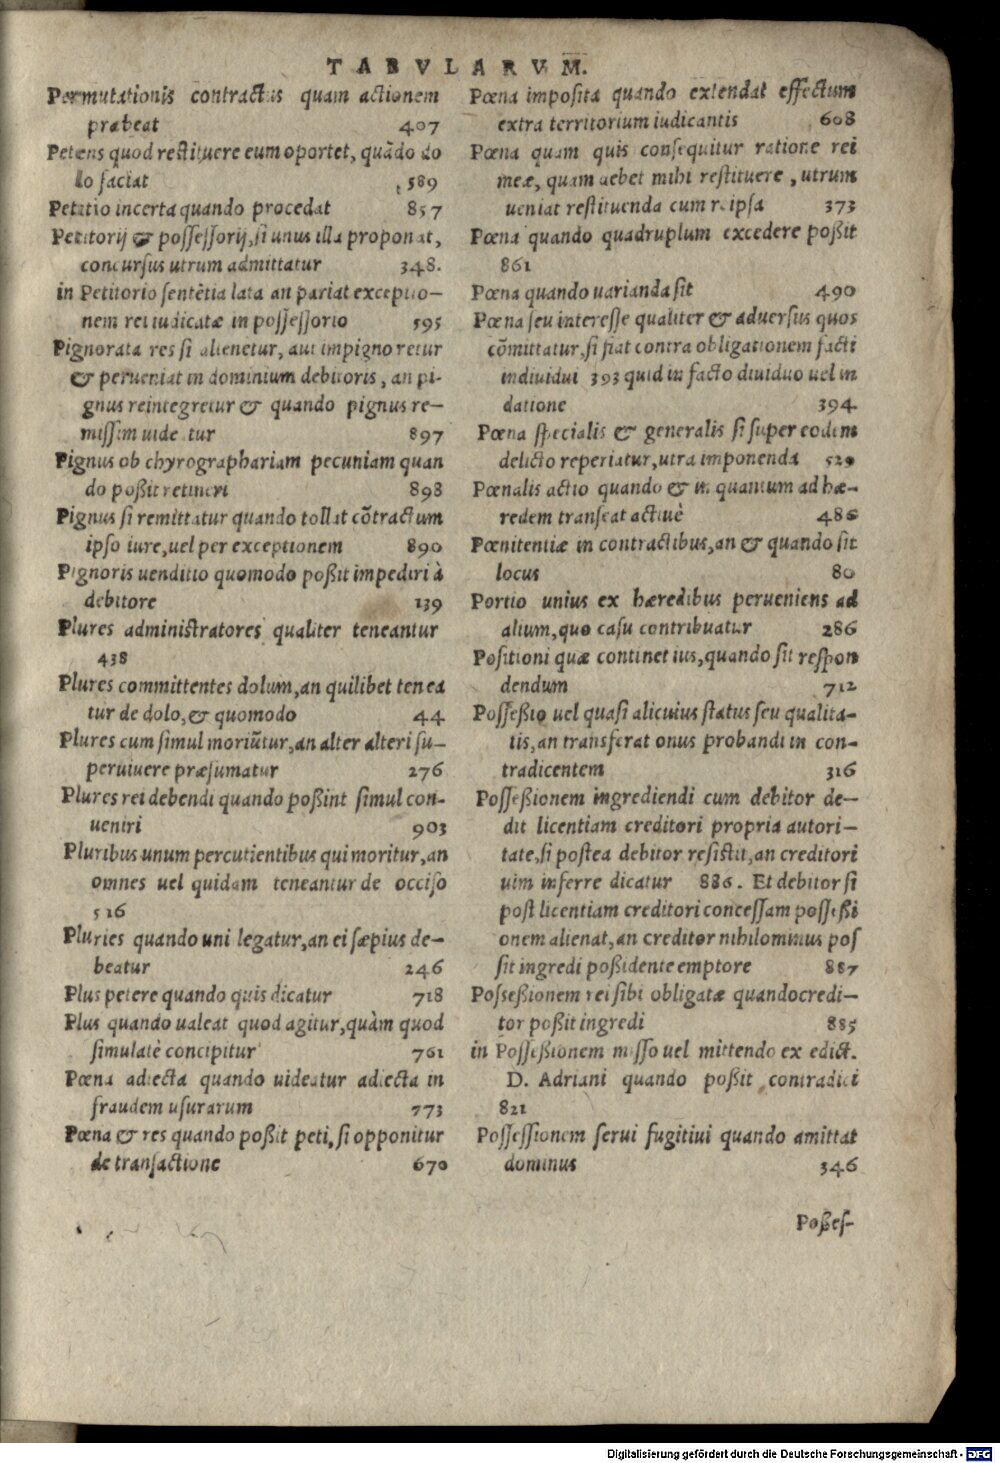 TABVLARVM.
Permutationis contractus quam actionem
præbeat 407
Petens quod restituere eum oportet, quãdo do
lo faciat 589
Petitio incerta quando procedat 857
Petitorij & possessorij, si unus illa proponat,
concursus utrum admittatur 348.
in Petitorio sentẽtia lata an pariat exceptio-
nem rei iudicatæ in possessorio 595
Pignorata res si alienetur, aut impignoretur
& perueniat in dominium debitoris, an pi-
gnus reintegretur & quando pignus re-
missum uidetur 897
Pignus ob chyrographariam pecuniam quan
do poßit retineri 898
Pignus si remittatur quando tollat cõtractum
ipso iure, uel per exceptionem 890
Pignoris uenditio quomodo poßit impediri à
debitore 139
Plures administratores qualiter teneantur
438
Plures committentes dolum, an quilibet tenea
tur de dolo, & quomodo 44
Plures cum simul moriũtur, an alter alteri su-
peruiuere præsumatur 276
Plures rei debendi quando poßint simul con-
ueniri 903
Pluribus unum percutientibus qui moritur, an
omnes uel quidam teneantur de occiso
516
Pluries quando uni legatur, an ei sæpius de-
beatur 246
Plus petere quando quis dicatur 718
Plus quando ualeat quod agitur, quàm quod
simulatè concipitur 761
Pœna adiecta quando uideatur adiecta in
fraudem usurarum 773
Pœna & res quando poßit peti, si opponitur
de transactione 670
Pœna imposita quando extendat effectum
extra territorium iudicantis 608
Pœna quam quis consequitur ratione rei
meæ, quam debet mihi restituere, utrum
ueniat restituenda cum re ipsa 373
Pœna quando quadruplum excedere poßit
861
Pœna quando uarianda sit 490
Pœna seu interesse qualiter & aduersus quos
cõmittatur, si fiat contra obligationem facti
indiuidui 393 quid in facto diuiduo uel in
datione 394
Pœna specialis & generalis si super eodem
delicto reperiatur, utra imponenda 529
Pœnalis actio quando & in quantum ad hæ-
redem transeat actiuè 486
Pœnitentiæ in contractibus, an & quando sit
locus 80
Portio unius ex hæredibus perueniens ad
alium, quo casu contribuatur 286
Positioni quæ continet ius, quando sit respon
dendum 712
Posseßio uel quasi alicuius status seu qualita-
tis, an transferat onus probandi in con-
tradicentem 316
Posseßionem ingrediendi cum debitor de-
dit licentiam creditori propria autori-
tate, si postea debitor resistit, an creditori
uim inferre dicatur 886. Et debitor si
post licentiam creditori concessam posseßi
onem alienat, an creditor nihilominus pos
sit ingredi poßidente emptore 887
Posseßionem rei sibi obligatæ quandocredi-
tor poßit ingredi 885
in Posseßionem misso uel mittendo ex edict.
D. Adriani quando poßit contradici
821
Possessionem serui fugitiui quando amittat
dominus 346
Poßes-
Digitalisierung gefördert durch die Deutsche Forschungsgemeinschaft - DFG